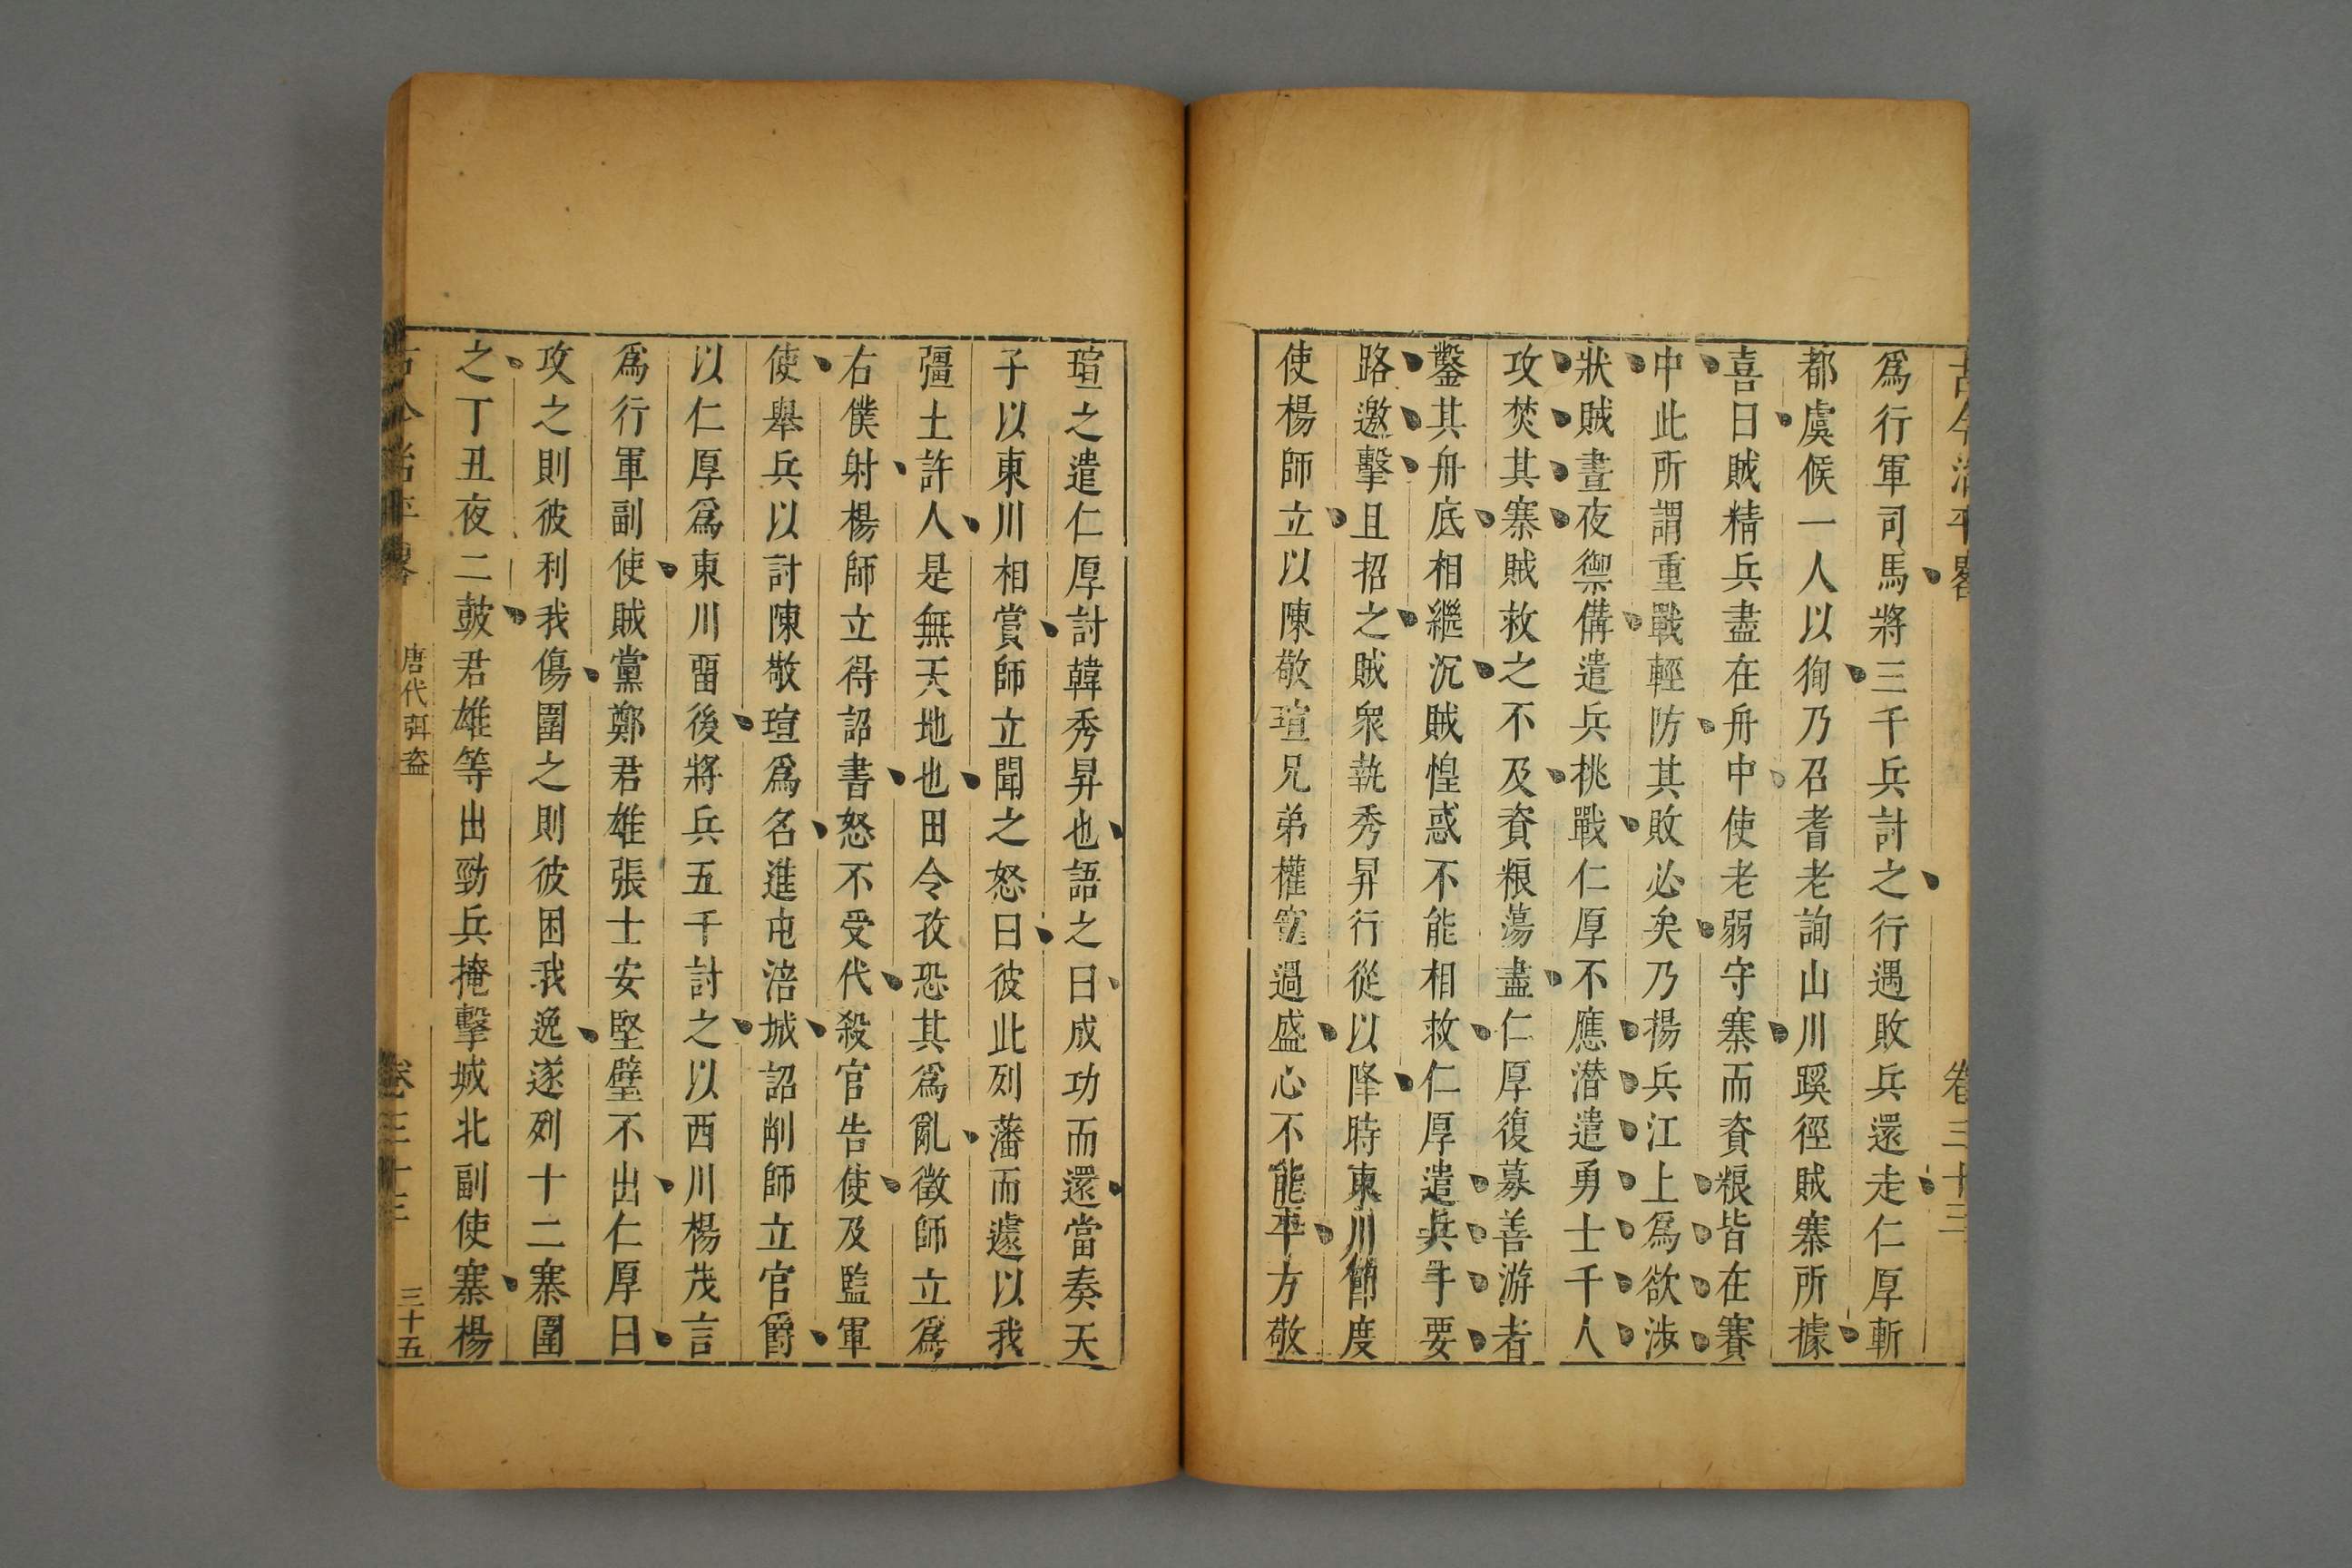 古今治平畧 卷三十三
爲行軍司馬將三千兵討之行遇敗兵還走仁厚斬
都虞候一人以徇乃召耆老詢山川蹊徑賊寨所據
喜曰賊精兵盡在舟中使老弱守寨而資粮皆在賽
中此所謂重戰輕防其敗必矣乃揚兵江上爲欲涉
狀賊晝夜禦備遣兵挑戰仁厚不應潛遣勇士千人
攻焚其寨賊救之不及資粮蕩盡仁厚復募善游者
鑿其舟底相繼沉賊惶惑不能相救仁厚遣兵于要
路邀擊且招之賊衆執秀昇行從以降時東川節度
使楊師立以陳敬瑄兄弟權寵過盛心不能平方敬
瑄之遣仁厚討韓秀昇也語之曰成功而還當奏天
子以東川相賞師立聞之怒曰彼此列藩而遽以我
彊土許人是無天地也田令孜恐其爲亂徵師立爲
右僕射楊師立得詔書怒不受代殺官告使及監軍
使舉兵以討陳敬瑄爲名進屯涪城詔削師立官爵
以仁厚爲東川畱後將兵五千討之以西川楊茂言
爲行軍副使賊黨鄭君雄張士安堅壁不出仁厚曰
攻之則彼利我傷圍之則彼困我逸遂列十二寨圍
之丁丑夜二鼓君雄等出勁兵掩擊城北副使寨楊
古今治平畧 唐代弭盗 卷三十三 三十五